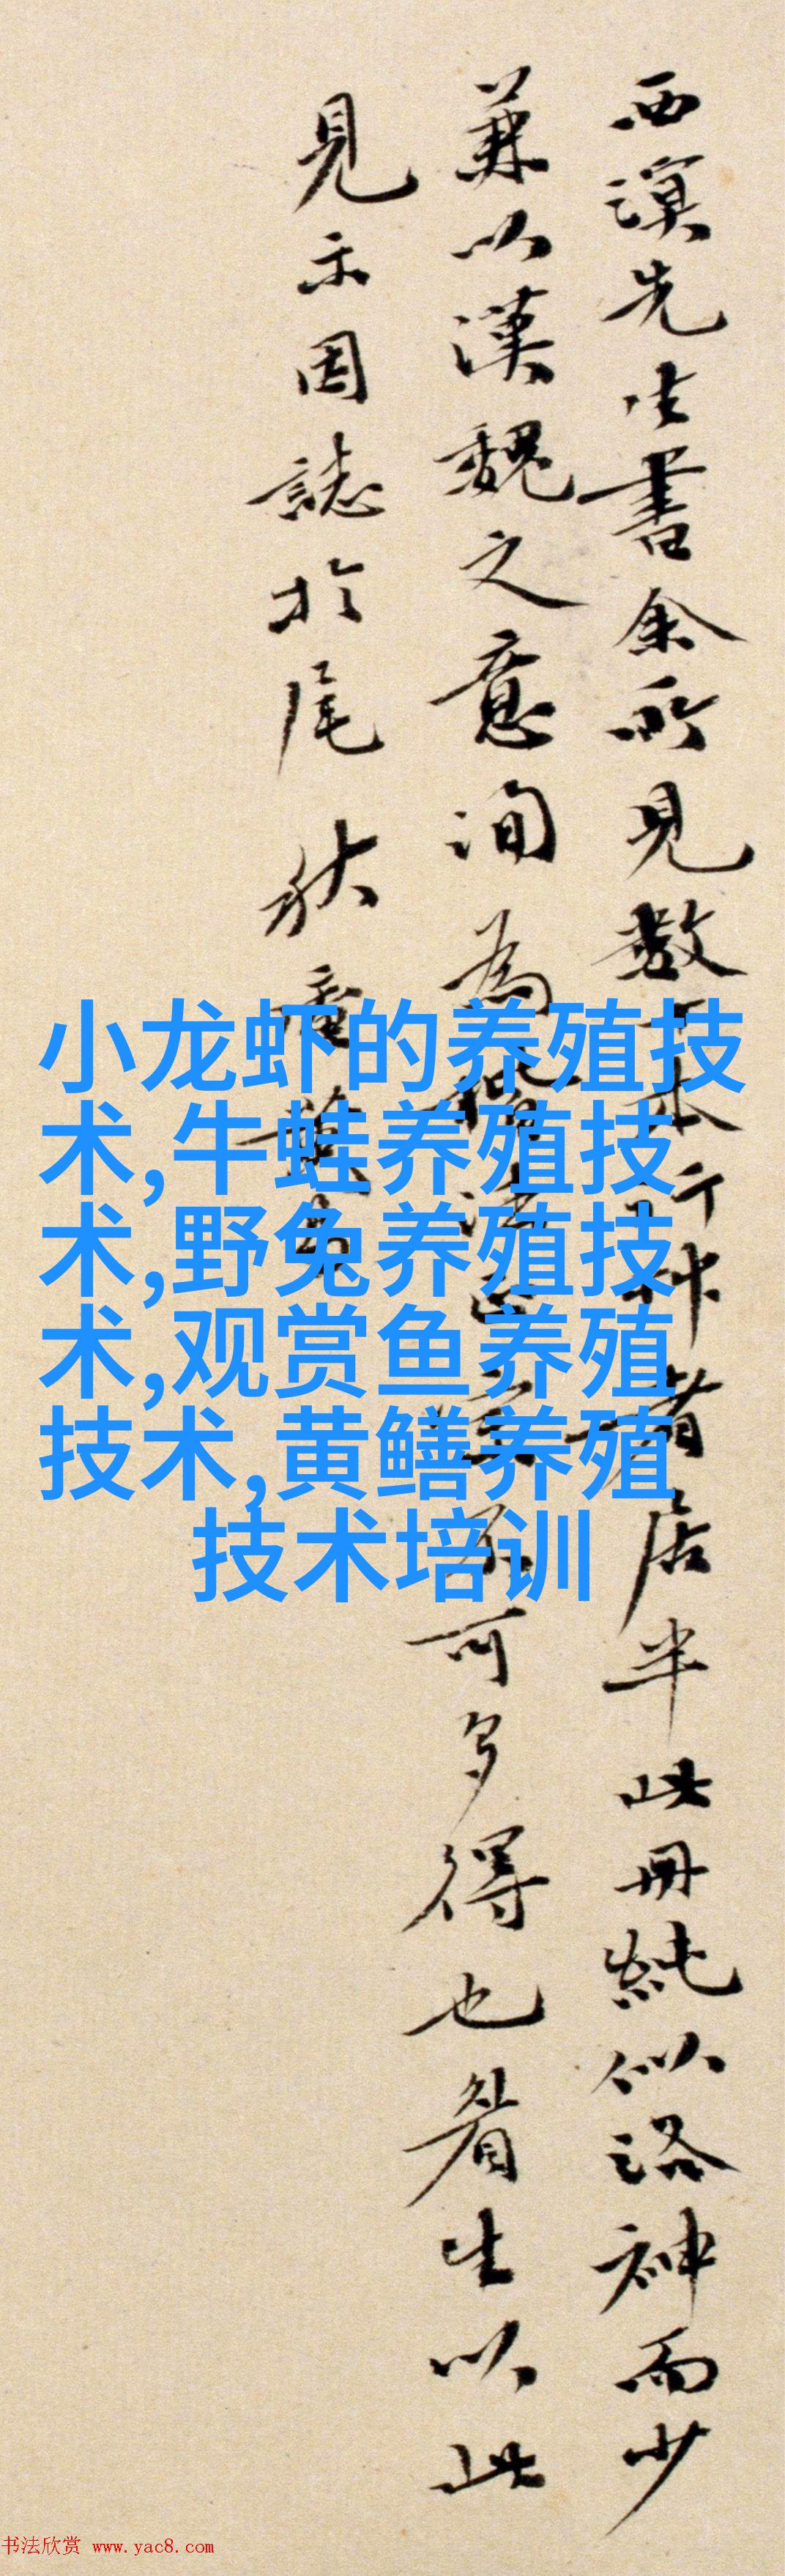 西溟先生書余所見數本行者居半此冊純似洛神而少
兼以漢魏之意洵為可多得也生以此
見示因誌於尾
小龙虾的养殖技
术,牛蛙养殖技
术,野兔养殖技
术,观赏鱼养殖
技术,黄鳝养殖
技术培训
书法欣赏 www.yac8.com